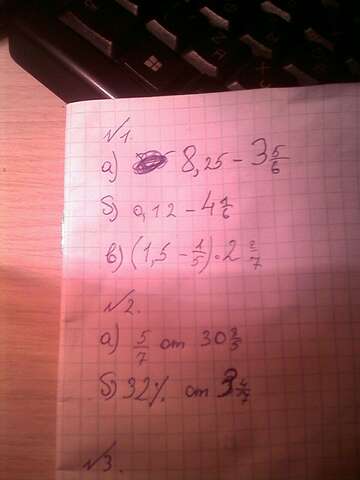 №1.
а) 8,25 - 3 5/6
б) 0,12 - 4 1/6
в) (1,5 - 1/5) · 2 2/7
№2.
а) 5/7 от 30 3/5
б) 32% от 3 4/7
№3.